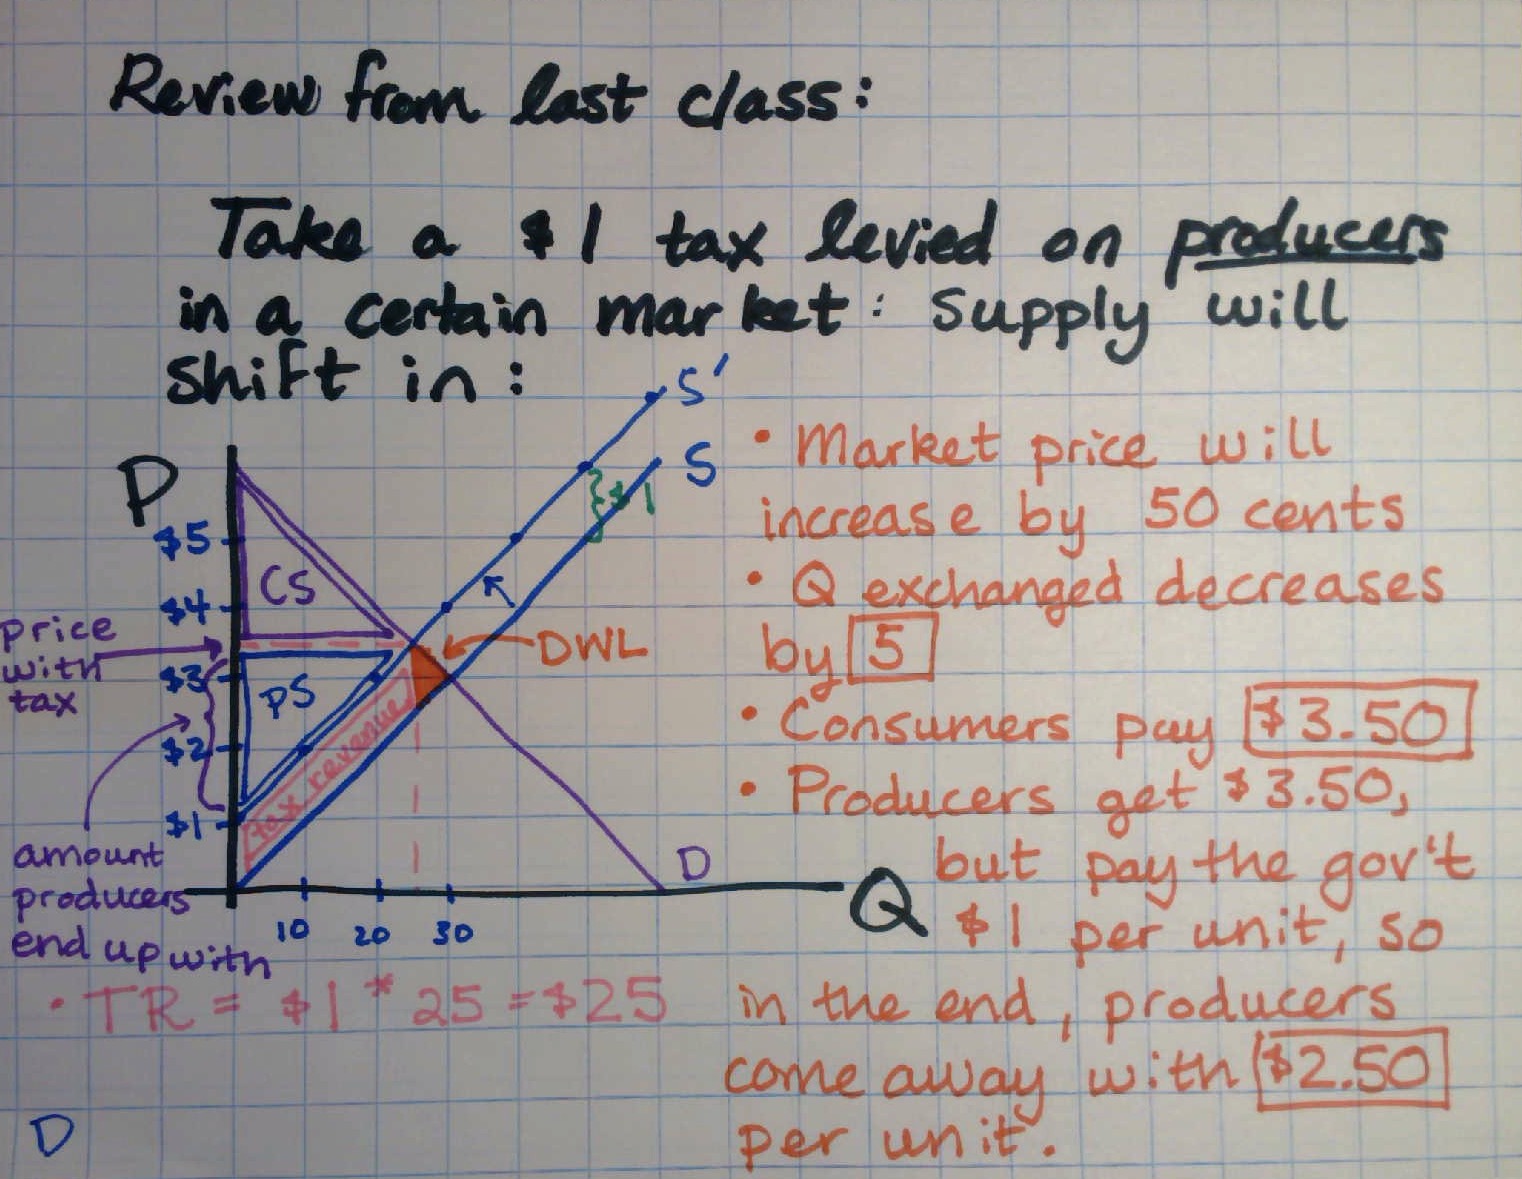 Review from last class:
Take a $1 tax levied on producers
in a certain market: Supply will
shift in:
P
$5
$4
$3
$2
$1
CS
PS
S'
S
$1
DWL
tax revenue
D
Q
10 20 30
price
with
tax
amount
producers
end up with
• TR = $1 * 25 = $25
D
• Market price will
increase by 50 cents
• Q exchanged decreases
by 5
• Consumers pay $3.50
• Producers get $3.50,
but pay the gov't
$1 per unit, so
in the end, producers
come away with $2.50
per unit.